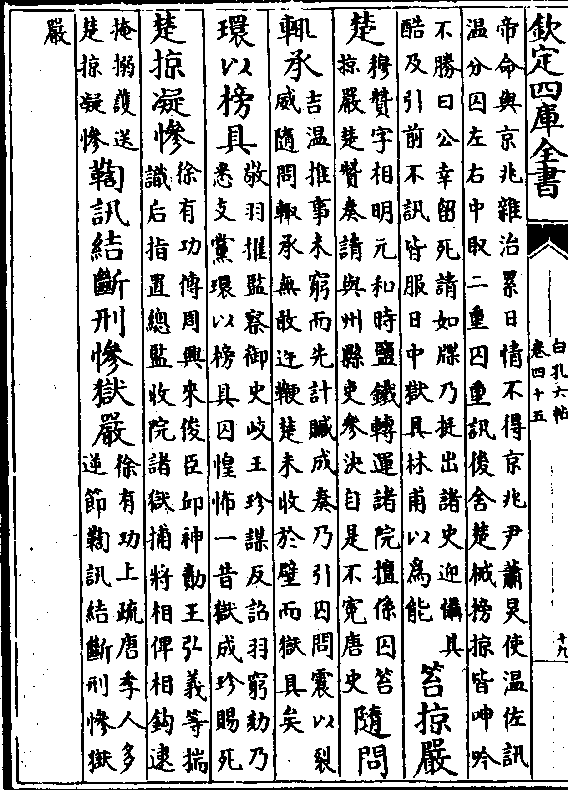 欽定四庫全書
帝命與京兆雜治累日情不得京兆尹蕭炅使温佐訊
温分囚左右中取二重囚重訊後舍楚械搒掠皆呻吟
不勝曰公幸留死請如牒乃挺出諸史迎懾其
酷及引前不訊皆服日中獄具林甫以為能
笞掠嚴
楚
穆贊字相明元和時鹽鐵轉運諸院擅係囚笞
掠嚴楚贊奏請與州縣吏參決自是不寃唐史
隨問
輒承
吉温推事未窮而先計贓成奏乃引囚問震以裂
威隨問輒承無敢迕鞭楚未收於壁而獄具矣
環以榜具
敬羽推監察御史岐王珍謀反詔羽窮劾乃
悉支黨環以榜具囚惶怖一昔獄成珍賜死
楚掠凝慘
徐有功傳周興來俊臣邱神勣王弘義等揣
識后指置總監收院諸獄捕將相俾相鈎逮
掩搦護送
楚掠凝慘
鞫訊結斷刑慘獄嚴
徐有功上疏唐季人多
逆節鞫訊結斷刑慘獄
嚴
白孔六帖
卷四十五
十九